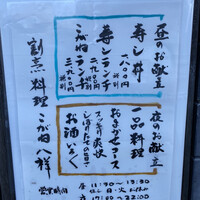 昼のお献立
寿し丼
一、八〇〇円
寿しランチ
二、九〇〇円
税別
こがねランチ
三、九〇〇円
税別
夜のお献立
一品料理
おまかせコース
スッキリ爽快
しぼりたて
お酒いろく
割烹料理
こがね八祥
営業時間
昼 11:30〜13:30
夜 17:30〜22:00